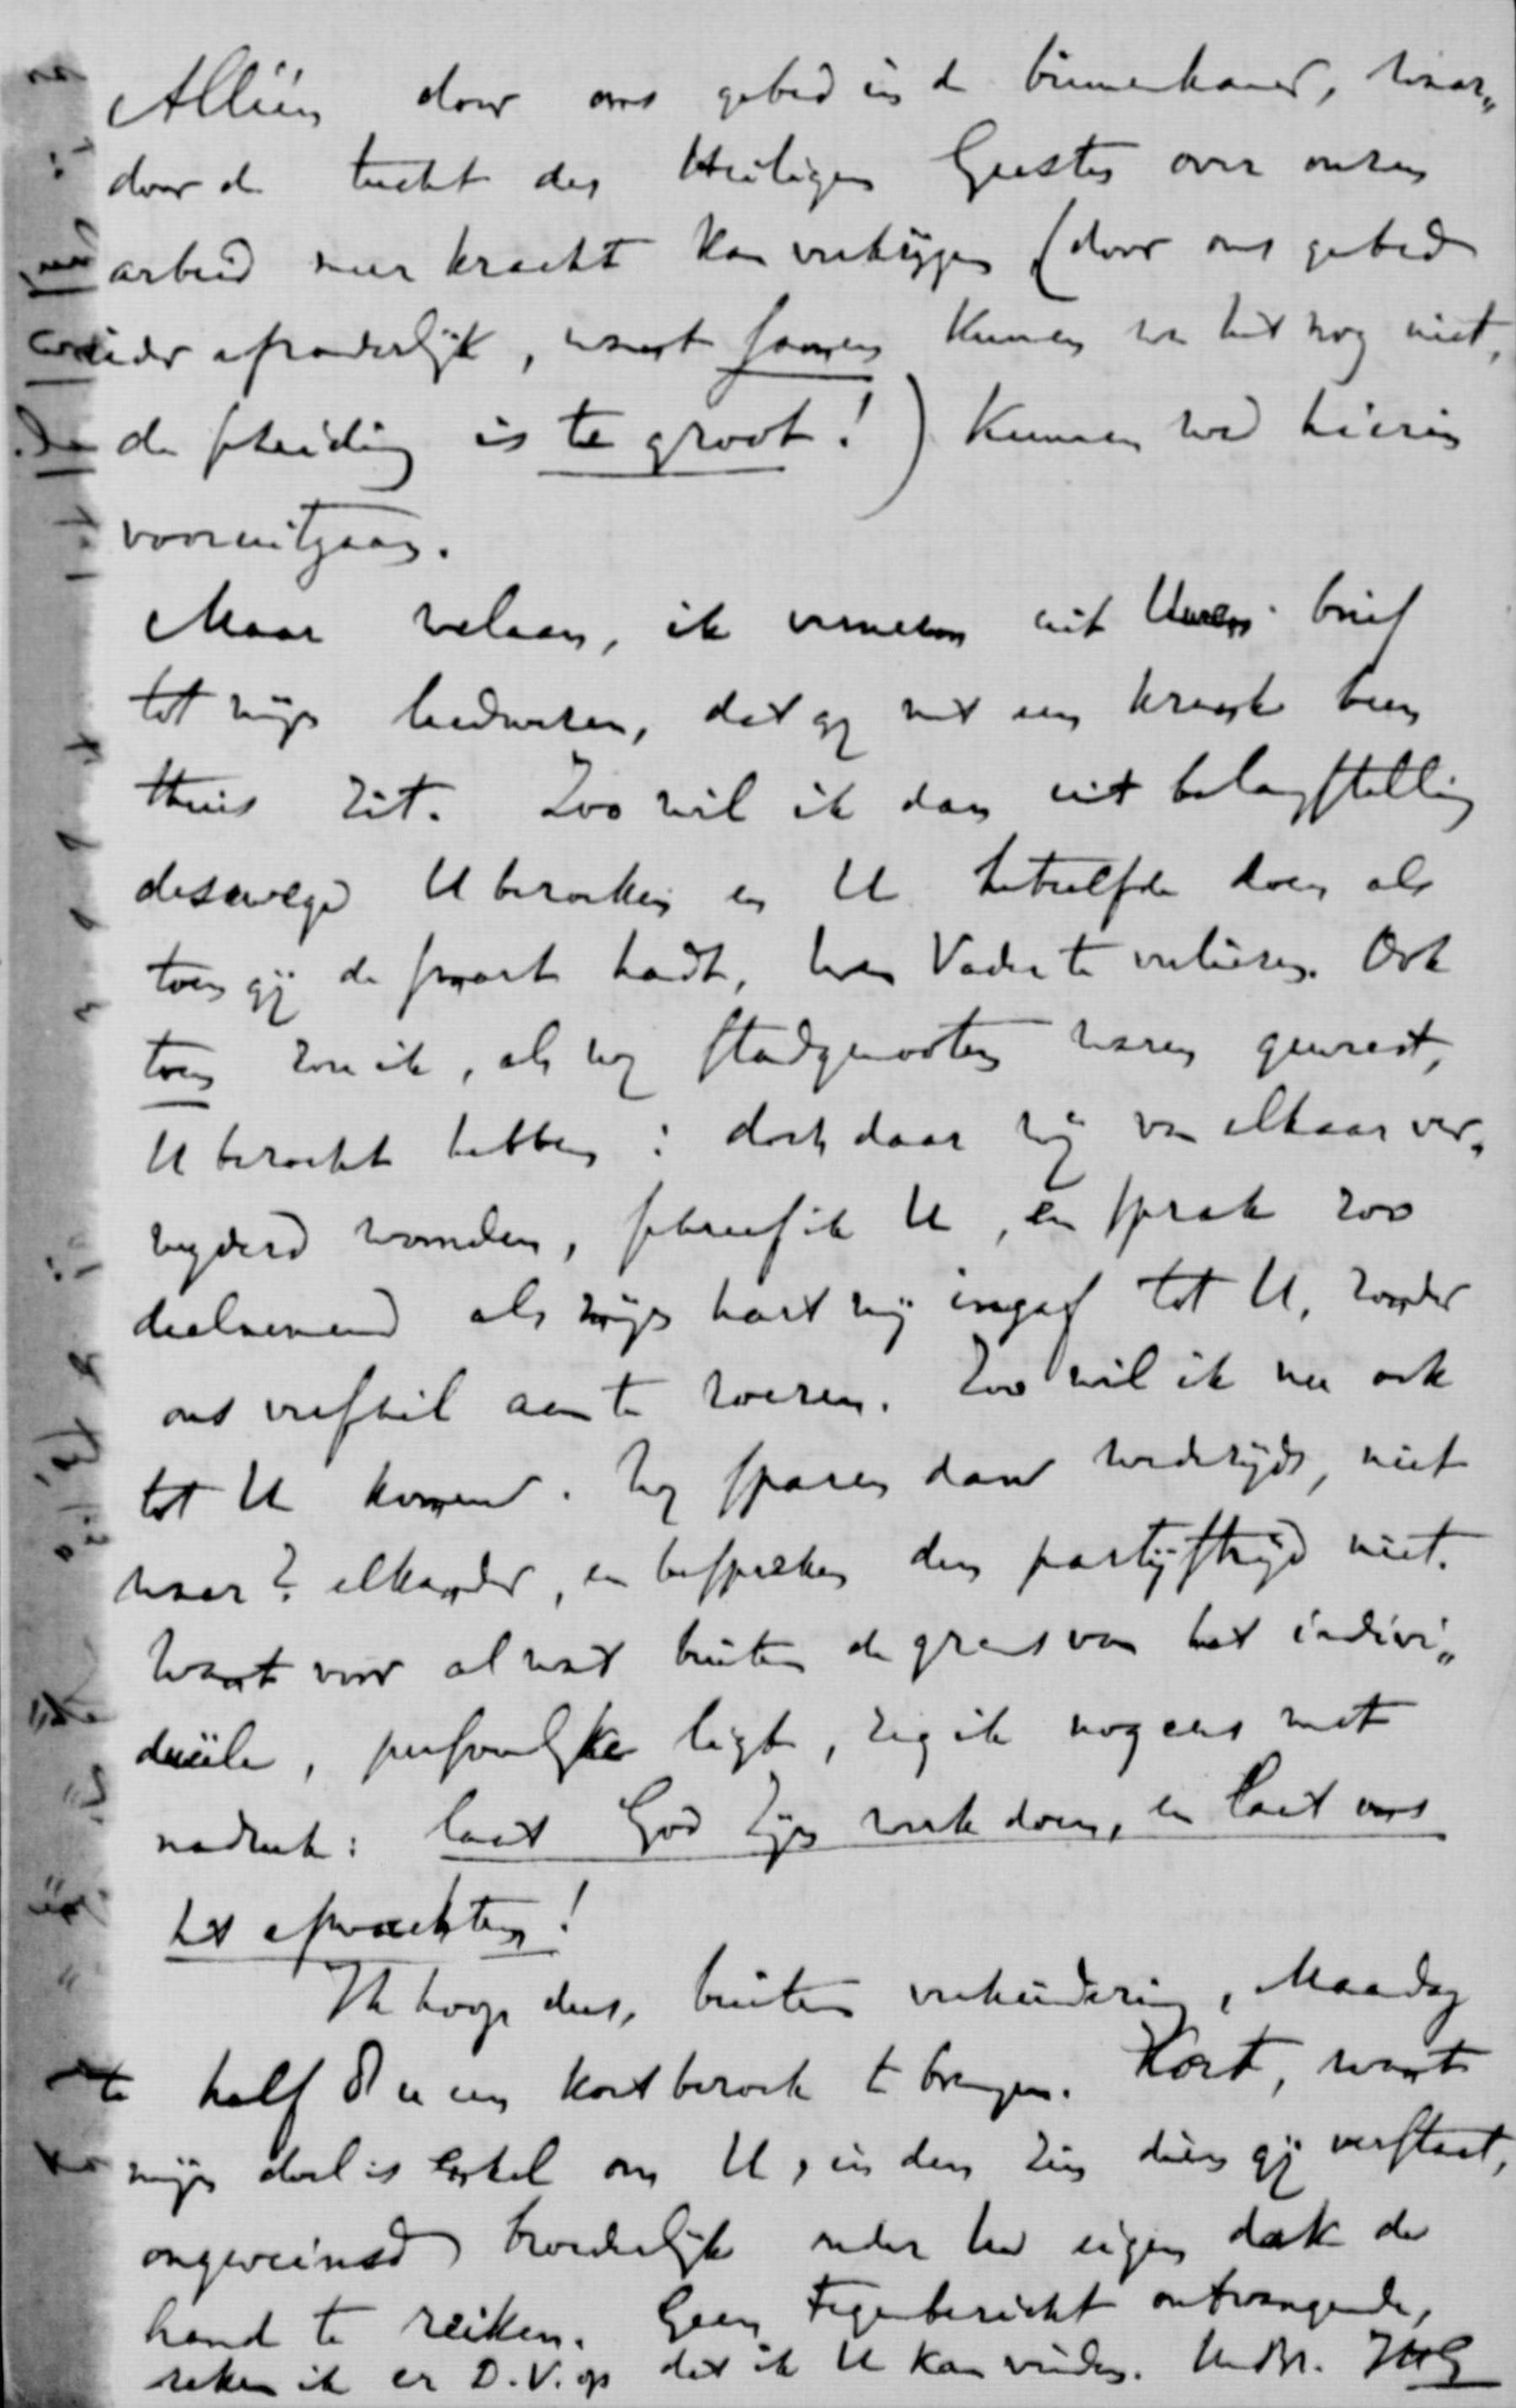 Alléén door ons gebed in de binnenkamer, waar„
door de tucht des Heiligen Geestes over onzen
arbeid meer kracht kan verkrijgen (door ons gebed
ieder afzonderlijk, want samen kunnen we het nog niet,
de scheiding is te groot!) kunnen we hierin
vooruitgaan.
Maar welaan, ik verneem uit Uwen brief
tot mijn leedwezen, dat gij met een krank been
thuis zit. Zoo wil ik dan uit belangstelling
deswege U bezoeken en U hetzelfde doen als
toen gij de smart hadt, Uwen Vader te verliezen. Ook
toen zou ik, als wij stadgenooten waren geweest,
U bezocht hebben: doch daar wij van elkaar ver„
wijderd woonden, schreef ik U, en sprak zoo
deelnemend als mijn hart mij ingaf tot U, zonder
ons verschil aan te roeren. Zoo wil ik nu ook
tot U komen. Wij sparen dan wederzijds, niet
waar? elkander, en bespreken den partijstrijd niet.
Want voor al wat buiten de grens van het indivi„
dueele, persoonlijke ligt, zeg ik nog eens met
nadruk: laat God Zijn werk doen, en laat ons
het afwachten!
Ik hoop dus, buiten verhindering, Maandag
te half 8 u een kort bezoek te brengen. Kort, want
mijn doel is enkel om U, in den zin dien gij verstaat,
ongeveinsd broederlijk onder Uw eigen dak de
hand te reiken. Geen tegenbericht ontvangende,
reken ik er D.V. op dat ik U kan vinden. Uw Br.